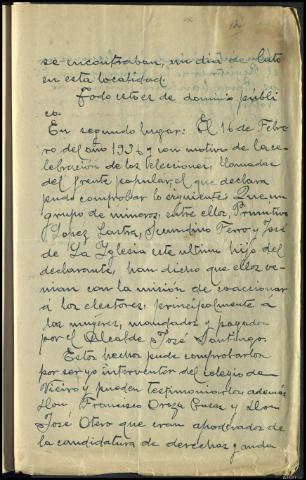 se encontraban, un dia de luto
en esta localidad.
Todo esto es de dominio públi
co.
En segundo lugar: El 16 de Febre
ro del año 1936 y con motivo de la ce
lebración de las elecciones llamadas
del frente popular, el que declara
pudo comprobar lo siguiente: Que un
grupo de mineros: entre ellos, Primitivo
López Lastra, Secundino Ferro y José
de La Iglesia este ultimo hijo del
declarante, han dicho que ellos ve
nian con la misión de coaccionar
á los electores: principalmente á
las mujeres, mandados y pagados
por el Alcalde José Santiago.
Estos hechos pude comprobarlos
por ser yo interventor del colegio de
y pueden testimoniarlos además
Don Francisco Oroza y Don
José Otero que eran apoderados de
la candidatura de derechas y anda